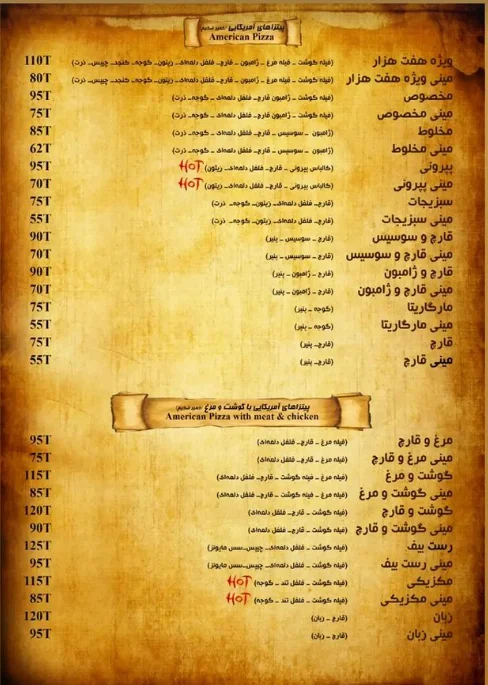 پیتزاهای آمریکایی (خمیر ضخیم)
American Pizza
ویژه هفت هزار (فیله گوشت - فیله مرغ - ژامبون - قارچ- فلفل دلمه‌ای- زیتون- گوجه- کنجد- چیپس- ذرت) 110T
مینی ویژه هفت هزار (فیله گوشت - فیله مرغ - ژامبون - قارچ- فلفل دلمه‌ای- زیتون- گوجه- کنجد- چیپس- ذرت) 80T
مخصوص (فیله گوشت - ژامبون قارچ- فلفل دلمه‌ای - گوجه- ذرت) 95T
مینی مخصوص (فیله گوشت - ژامبون قارچ- فلفل دلمه‌ای - گوجه- ذرت) 75T
مخلوط (ژامبون - سوسیس - قارچ- فلفل دلمه‌ای - ذرت) 85T
مینی مخلوط (ژامبون - سوسیس - قارچ- فلفل دلمه‌ای - گوجه- ذرت) 62T
پپرونی (کالباس پپرونی - قارچ- فلفل دلمه‌ای- زیتون) HOT 95T
مینی پپرونی (کالباس پپرونی - قارچ- فلفل دلمه‌ای- زیتون) HOT 70T
سبزیجات (قارچ- فلفل دلمه‌ای- زیتون- گوجه- ذرت) 75T
مینی سبزیجات (قارچ- فلفل دلمه‌ای- زیتون- گوجه- ذرت) 55T
قارچ و سوسیس (قارچ- سوسیس - پنیر) 90T
مینی قارچ و سوسیس (قارچ- سوسیس - پنیر) 70T
قارچ و ژامبون (قارچ - ژامبون - پنیر) 90T
مینی قارچ و ژامبون (قارچ - ژامبون - پنیر) 70T
مارگاریتا (گوجه - پنیر) 75T
مینی مارگاریتا (گوجه - پنیر) 55T
قارچ (قارچ- پنیر) 75T
مینی قارچ (قارچ- پنیر) 55T
پیتزاهای آمریکایی با گوشت و مرغ (خمیر ضخیم)
American Pizza with meat & chicken
مرغ و قارچ (فیله مرغ - قارچ- فلفل دلمه‌ای) 95T
مینی مرغ و قارچ (فیله مرغ - قارچ- فلفل دلمه‌ای) 75T
گوشت و مرغ (فیله مرغ - فیله گوشت - قارچ- فلفل دلمه‌ای) 115T
مینی گوشت و مرغ (فیله مرغ - فیله گوشت - قارچ- فلفل دلمه‌ای) 85T
گوشت و قارچ (فیله گوشت - قارچ- فلفل دلمه‌ای) 120T
مینی گوشت و قارچ (فیله گوشت - قارچ- فلفل دلمه‌ای) 90T
رست بیف (فیله گوشت - فلفل دلمه‌ای- چیپس-سس مایونز) 125T
مینی رست بیف (فیله گوشت - فلفل دلمه‌ای- چیپس-سس مایونز) 95T
مکزیکی (فیله گوشت - فلفل تند - گوجه) HOT 115T
مینی مکزیکی (فیله گوشت - فلفل تند - گوجه) HOT 85T
زبان (قارچ - زبان) 120T
مینی زبان (قارچ - زبان) 95T